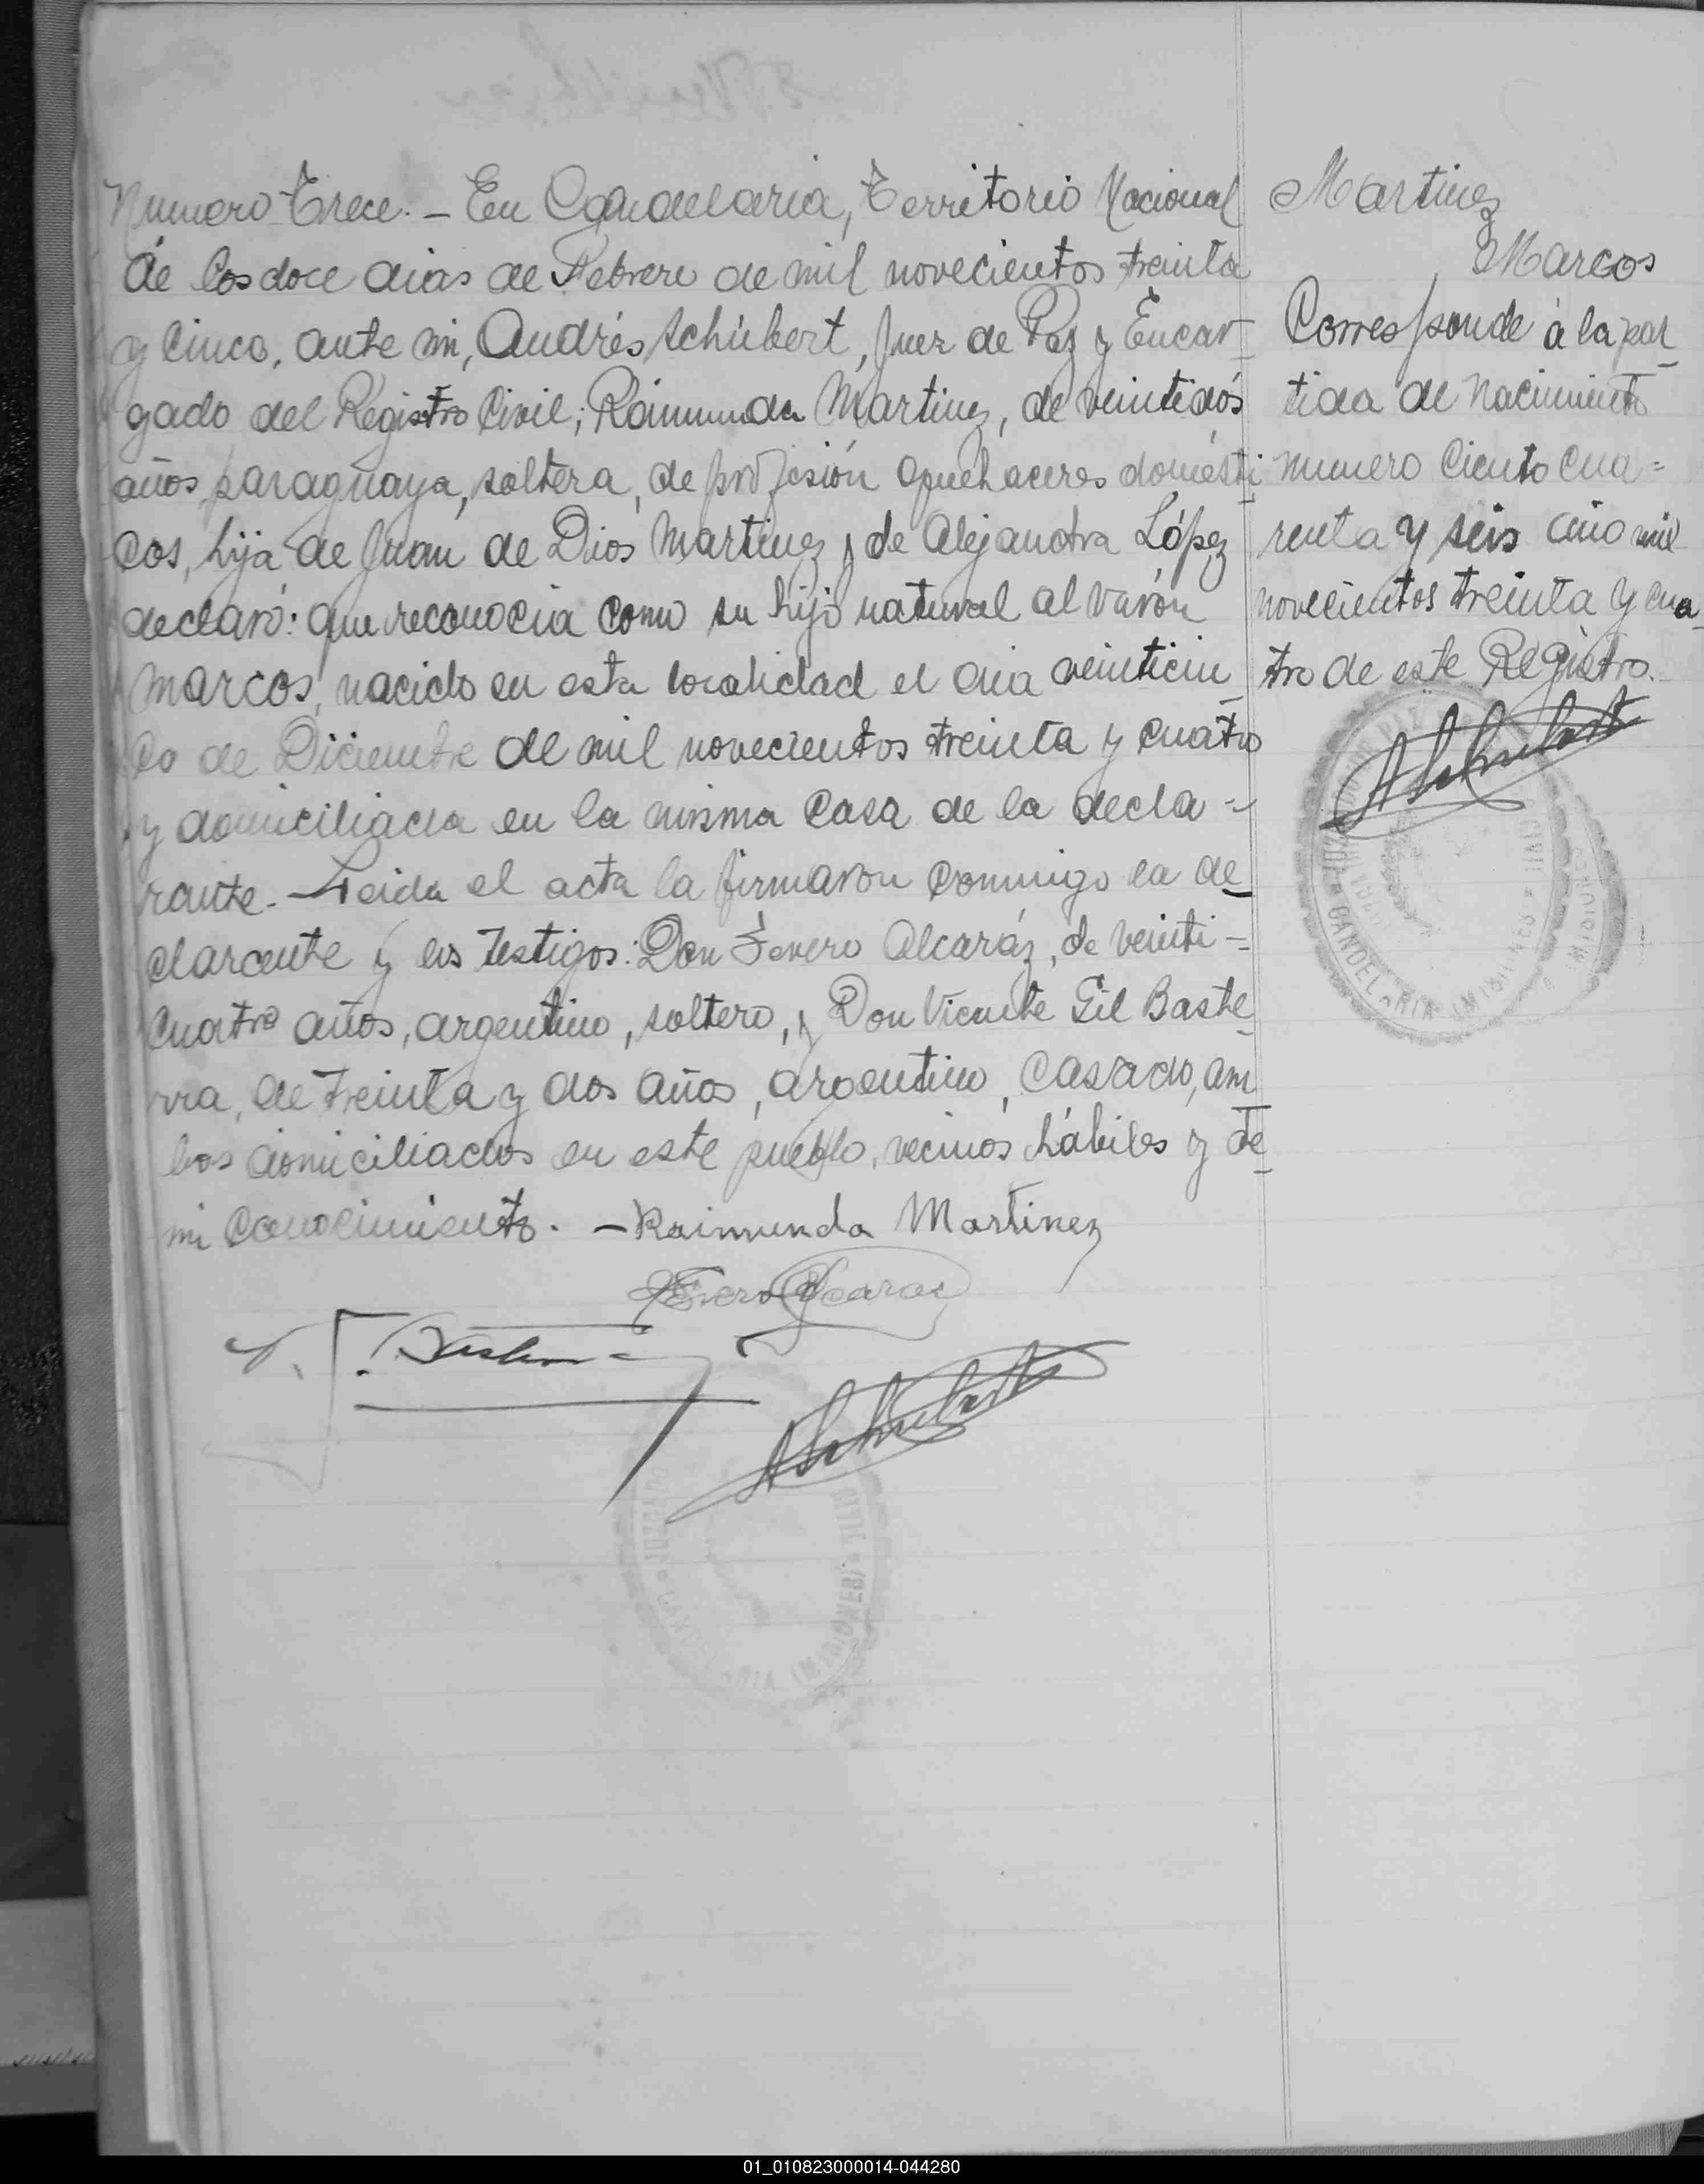 Numero Trece. — En Candelaria, Territorio Nacional
de los doce dias de Febrero de mil novecientos treinta
y cinco, ante mi, Andrés Schübert, Juez de Paz y Encar-
gado del Registro Civil; Raimunda Martinez, de veintidós
años, paraguaya, soltera, de profesión quehaceres domésti
cos, hija de Juan de Dios Martinez y de Alejandra López
declaró: que reconocia como su hijo natural al varón
Marcos, nacido en esta localidad el dia veinticin_
co de Diciembre de mil novecientos treinta y cuatro
y domiciliada en la misma casa de la decla=
rante. — Leida el acta la firmaron conmigo la de_
clarante y los testigos: Don Severo Alcaráz, de veinti=
cuatro años, argentino, soltero, y Don Vicente Gil Baste_
rra, de treinta y dos años, argentino, casado, am_
bos domiciliados en este pueblo, vecinos hábiles y de_
mi conocimiento. — Raimunda Martinez
Severo Alcaraz
V. G. Basterra
ASchubert
Martinez
Marcos
Corresponde à la par_
tida de nacimiento
numero ciento cua=
renta y seis año mil
novecientos treinta y cua_
tro de este Registro.
ASchubert
CANDELARIA (MISIONES)
CIVIL
01_010823000014-044280